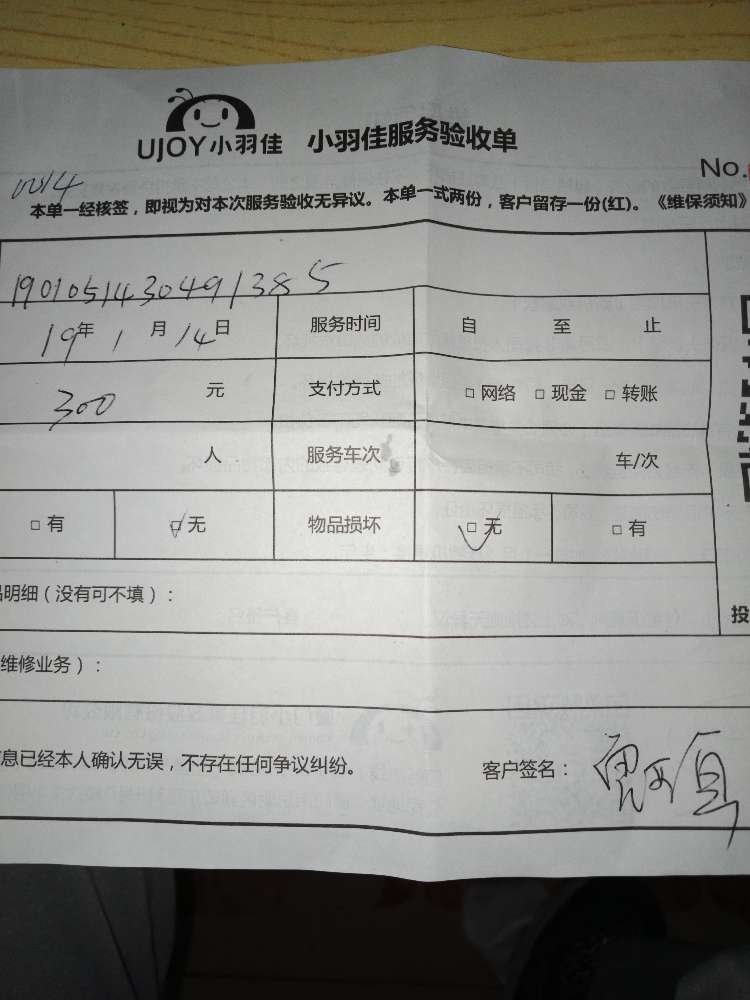 UJOY小羽佳 小羽佳服务验收单
No.
0014
本单一经核签，即视为对本次服务验收无异议。本单一式两份，客户留存一份(红)。《维保须知》
1901051430491385
19年1月14日 服务时间 自 至 止
300 元 支付方式 □网络 □现金 □转账
人 服务车次 车/次
□有 □无 物品损坏 □无 □有
品明细（没有可不填）：
投
维修业务）：
息已经本人确认无误，不存在任何争议纠纷。 客户签名：